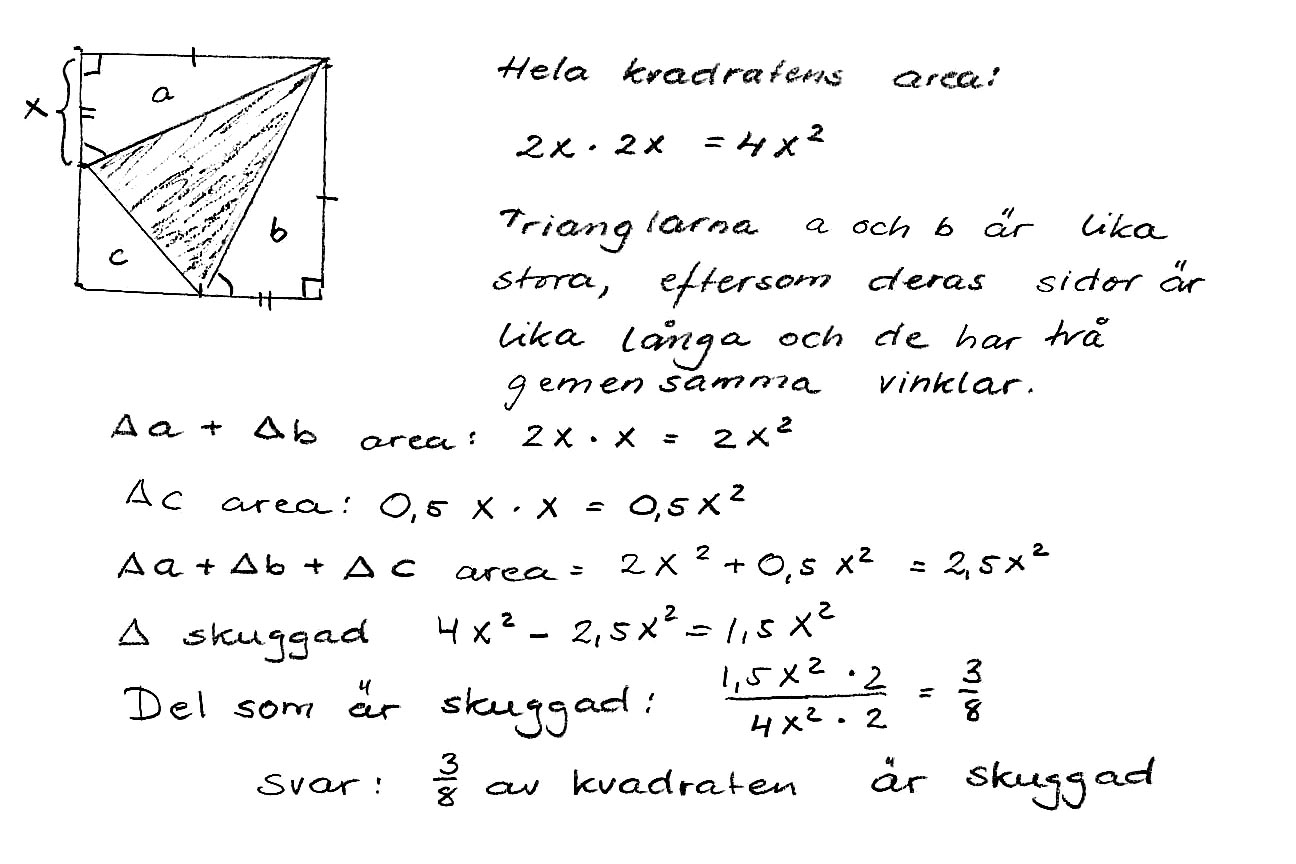 Hela kvadratens area:
x
a
b
c
2x · 2x = 4x²
Trianglarna a och b är lika
stora, eftersom deras sidor är
lika långa och de har två
gemensamma vinklar.
Δa + Δb area: 2x · x = 2x²
Δc area: 0,5 x · x = 0,5x²
Δa + Δb + Δc area = 2x² + 0,5 x² = 2,5x²
Δ skuggad 4x² - 2,5x² = 1,5 x²
Del som är skuggad: (1,5x² · 2)/(4x² · 2) = 3/8
Svar: 3/8 av kvadraten är skuggad